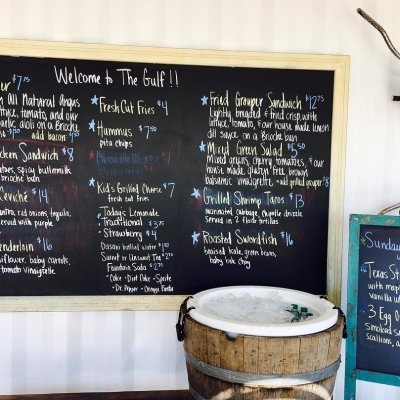 Welcome to The Gulf !!
$7.75
All Natural Angus
lettuce, tomato, and our
garlic aioli on a Brioche
add bacon
Sandwich $8
spicy buttermilk
brioche bun
Ceviche $14
red onions, tequila,
served with purple
$16
baby carrots,
tomato vinaigrette
Fresh Cut Fries $4
Hummus $7.50
pita chips
Kid's Grilled Cheese $7
fresh cut fries
Today's Lemonade
Traditional $3.75
Strawberry $4
Dasani bottled water
Sweet or Unsweet Tea
Fountain Soda
Coke - Diet Coke - Sprite
Dr. Pepper - Orange Fanta
Fried Grouper Sandwich $12.75
Lightly breaded & fried crisp, with
lettuce, tomato, & our house made lemon
dill sauce on a Brioche bun
Mixed Green Salad
Mixed greens, cherry tomatoes, & our
house made, gluten free, brown
balsamic vinaigrette + add grilled grouper $8
Grilled Shrimp Tacos $13
marinated cabbage, chipotle drizzle
served in 2 flour tortillas
Roasted Swordfish $16
braised kale, green beans,
baby bok choy
Sunday
Texas
with map
vanilla
3 Egg O
smoked
scallions,